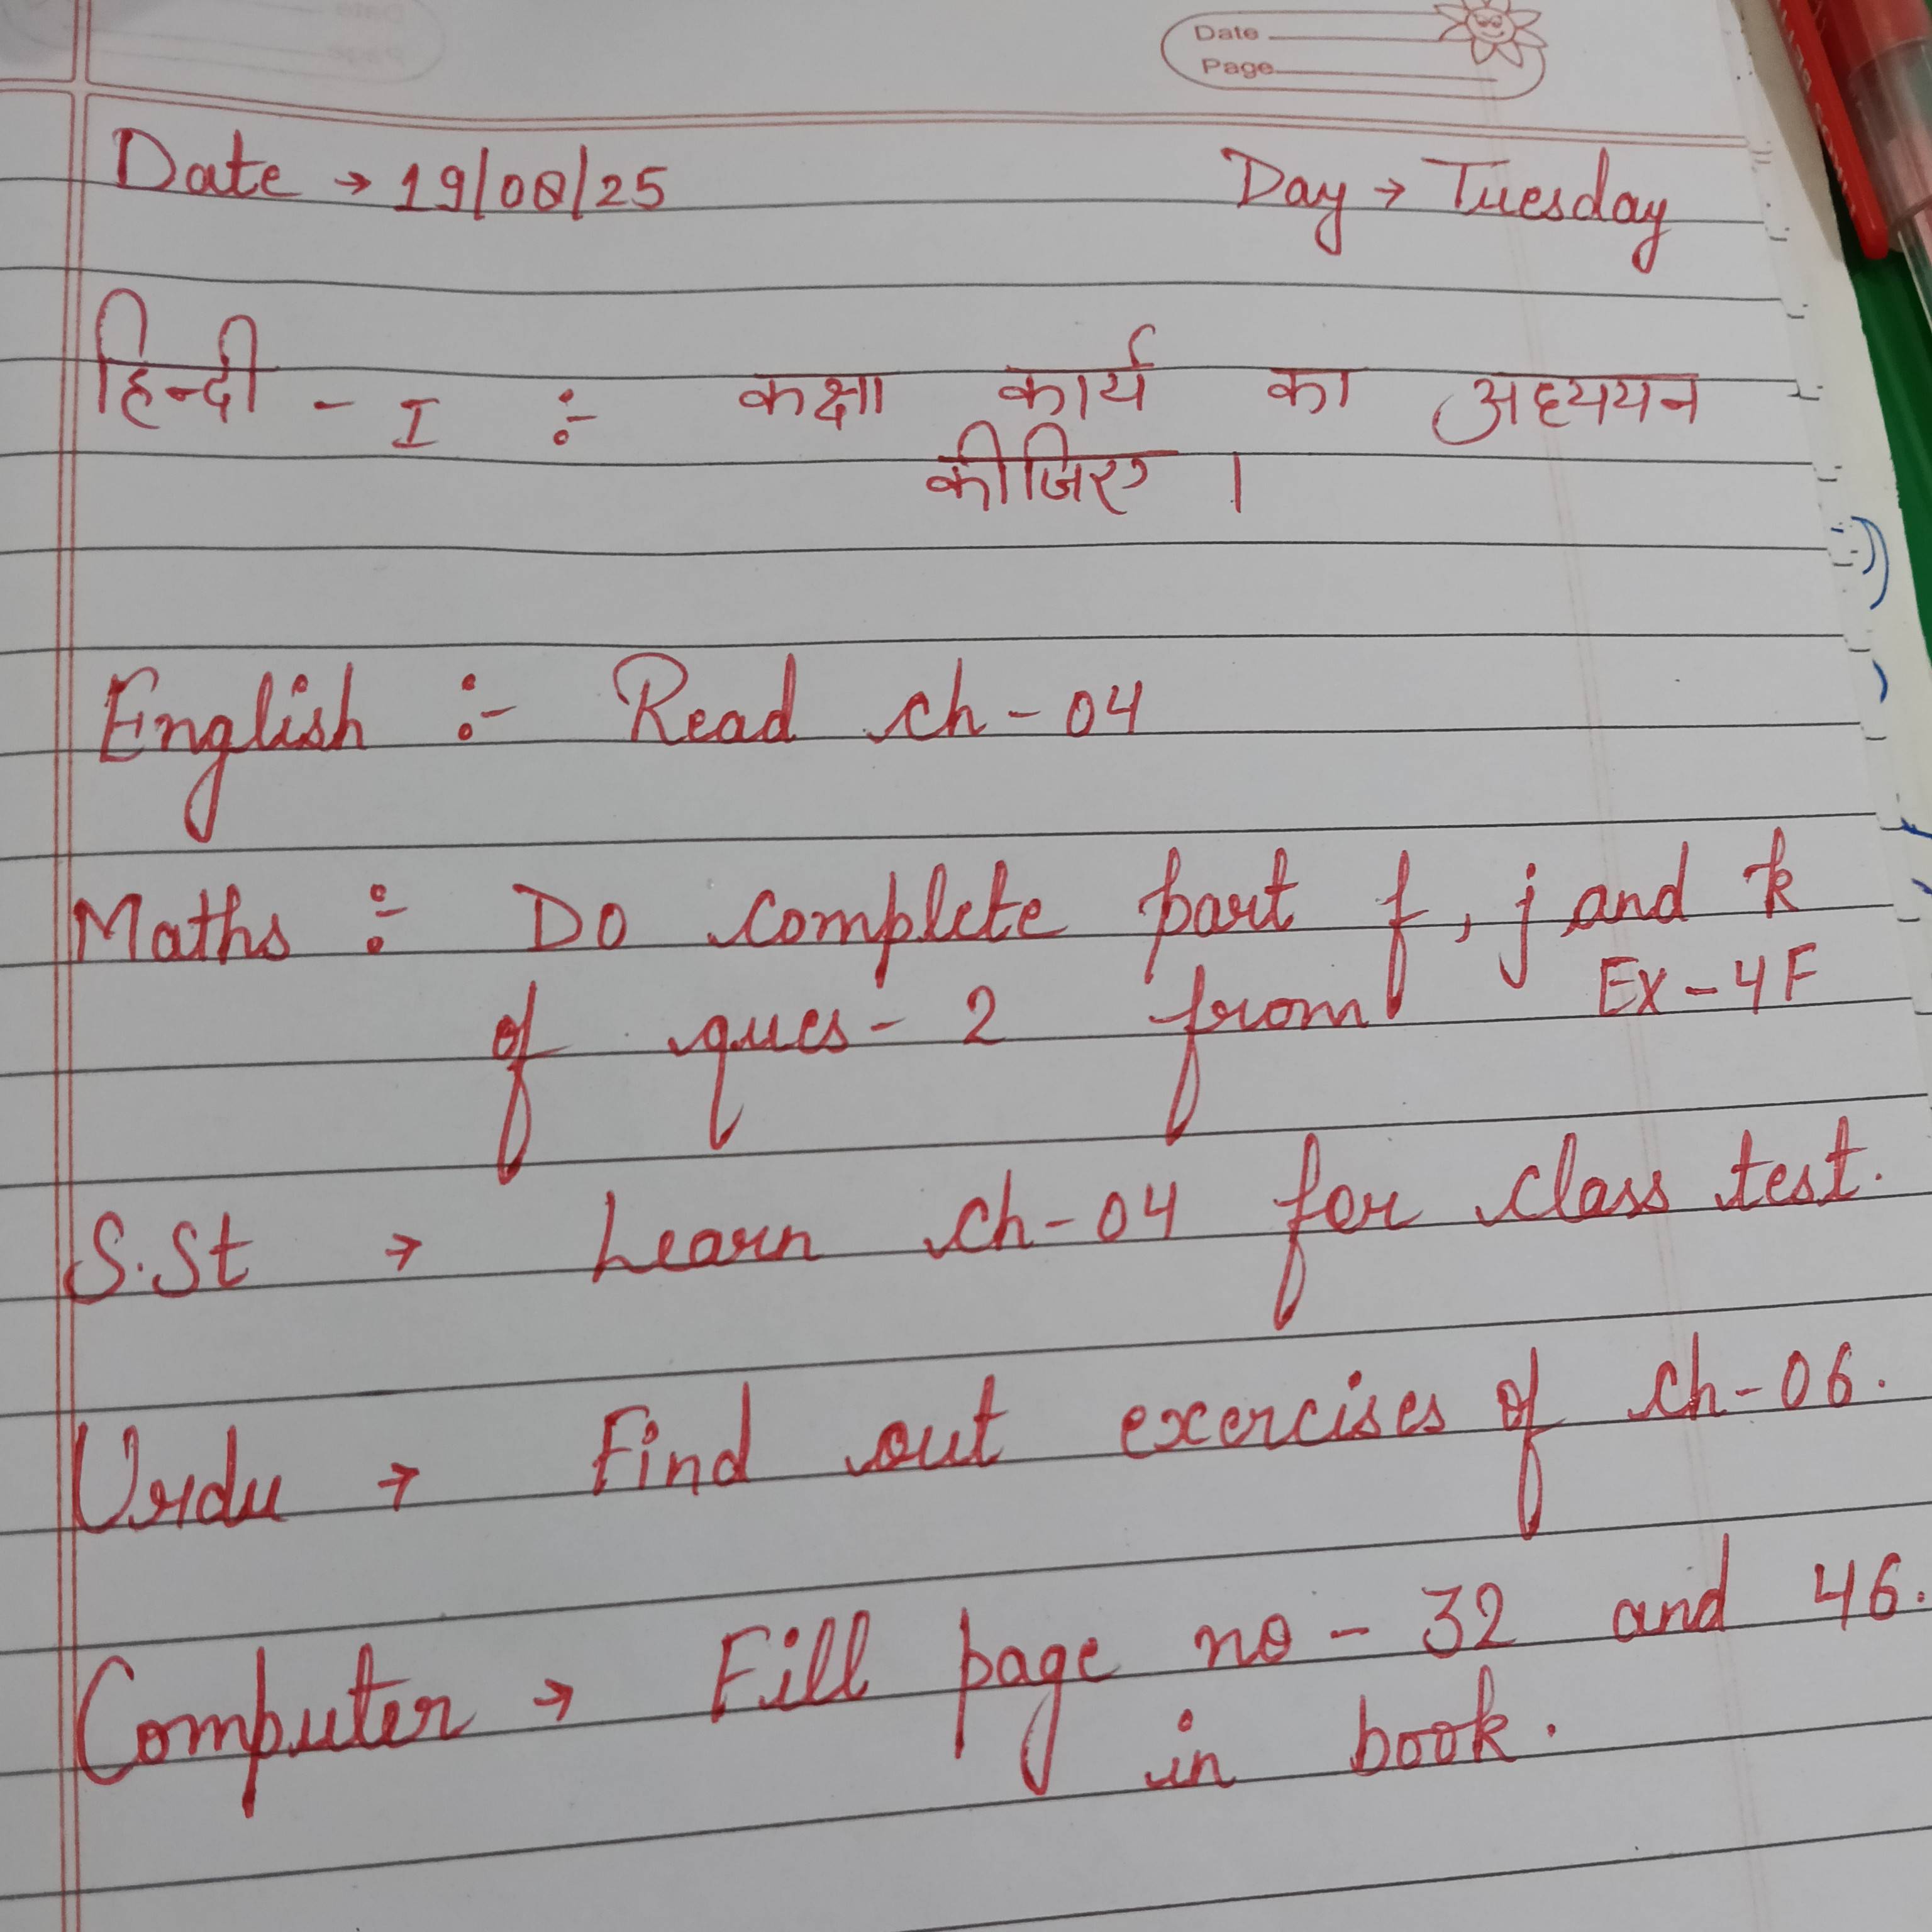 Date
Page
Date → 19/08/25 Day → Tuesday
हिन्दी - I :- कक्षा कार्य का अध्ययन
कीजिए ।
English :- Read ch - 04
Maths :- Do complete part f, j and k
of ques - 2 from Ex - 4F
S.St → Learn ch - 04 for class test.
Urdu → Find out exercises of ch - 06.
Computer → Fill page no - 32 and 46.
in book.